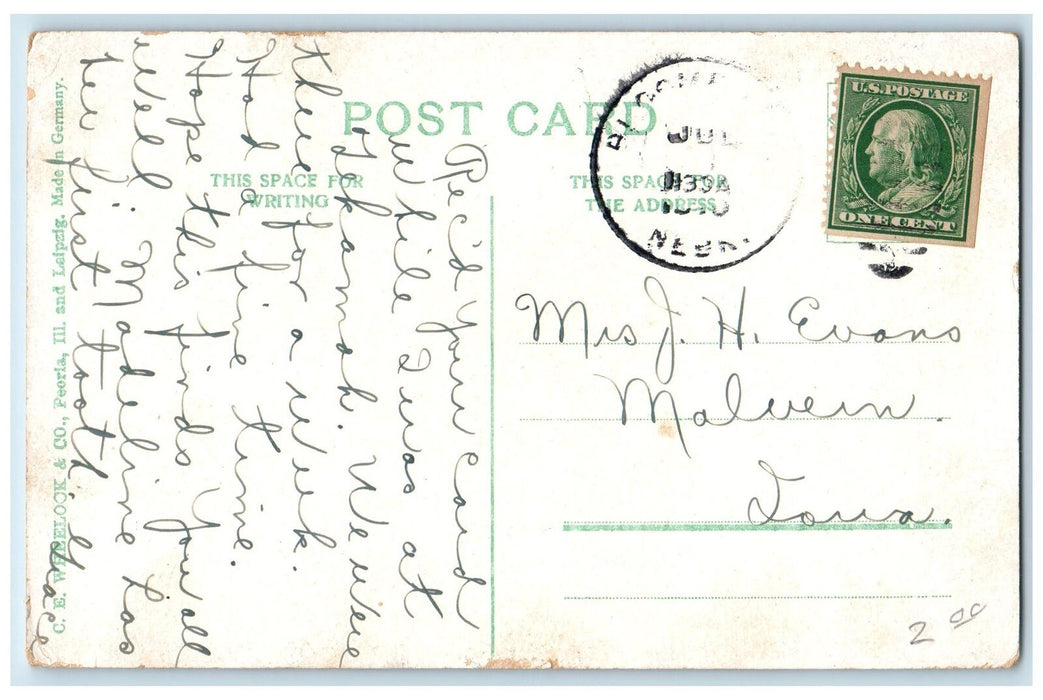 POST CARD
THIS SPACE FOR
WRITING
THIS SPACE FOR
THE ADDRESS
Rec'd your card
while I was at
Tekamah. We were
there for a week.
Had a fine time.
Hope this finds you all
well. Madeline has
her first tooth.
Grace
C. E. WHEELOCK & CO., Peoria, Ill. and Leipzig. Made in Germany.
JUL
1910
NEBR.
U.S. POSTAGE
ONE CENT
Mrs J. H. Evans
Malvern.
Iowa.
2 00